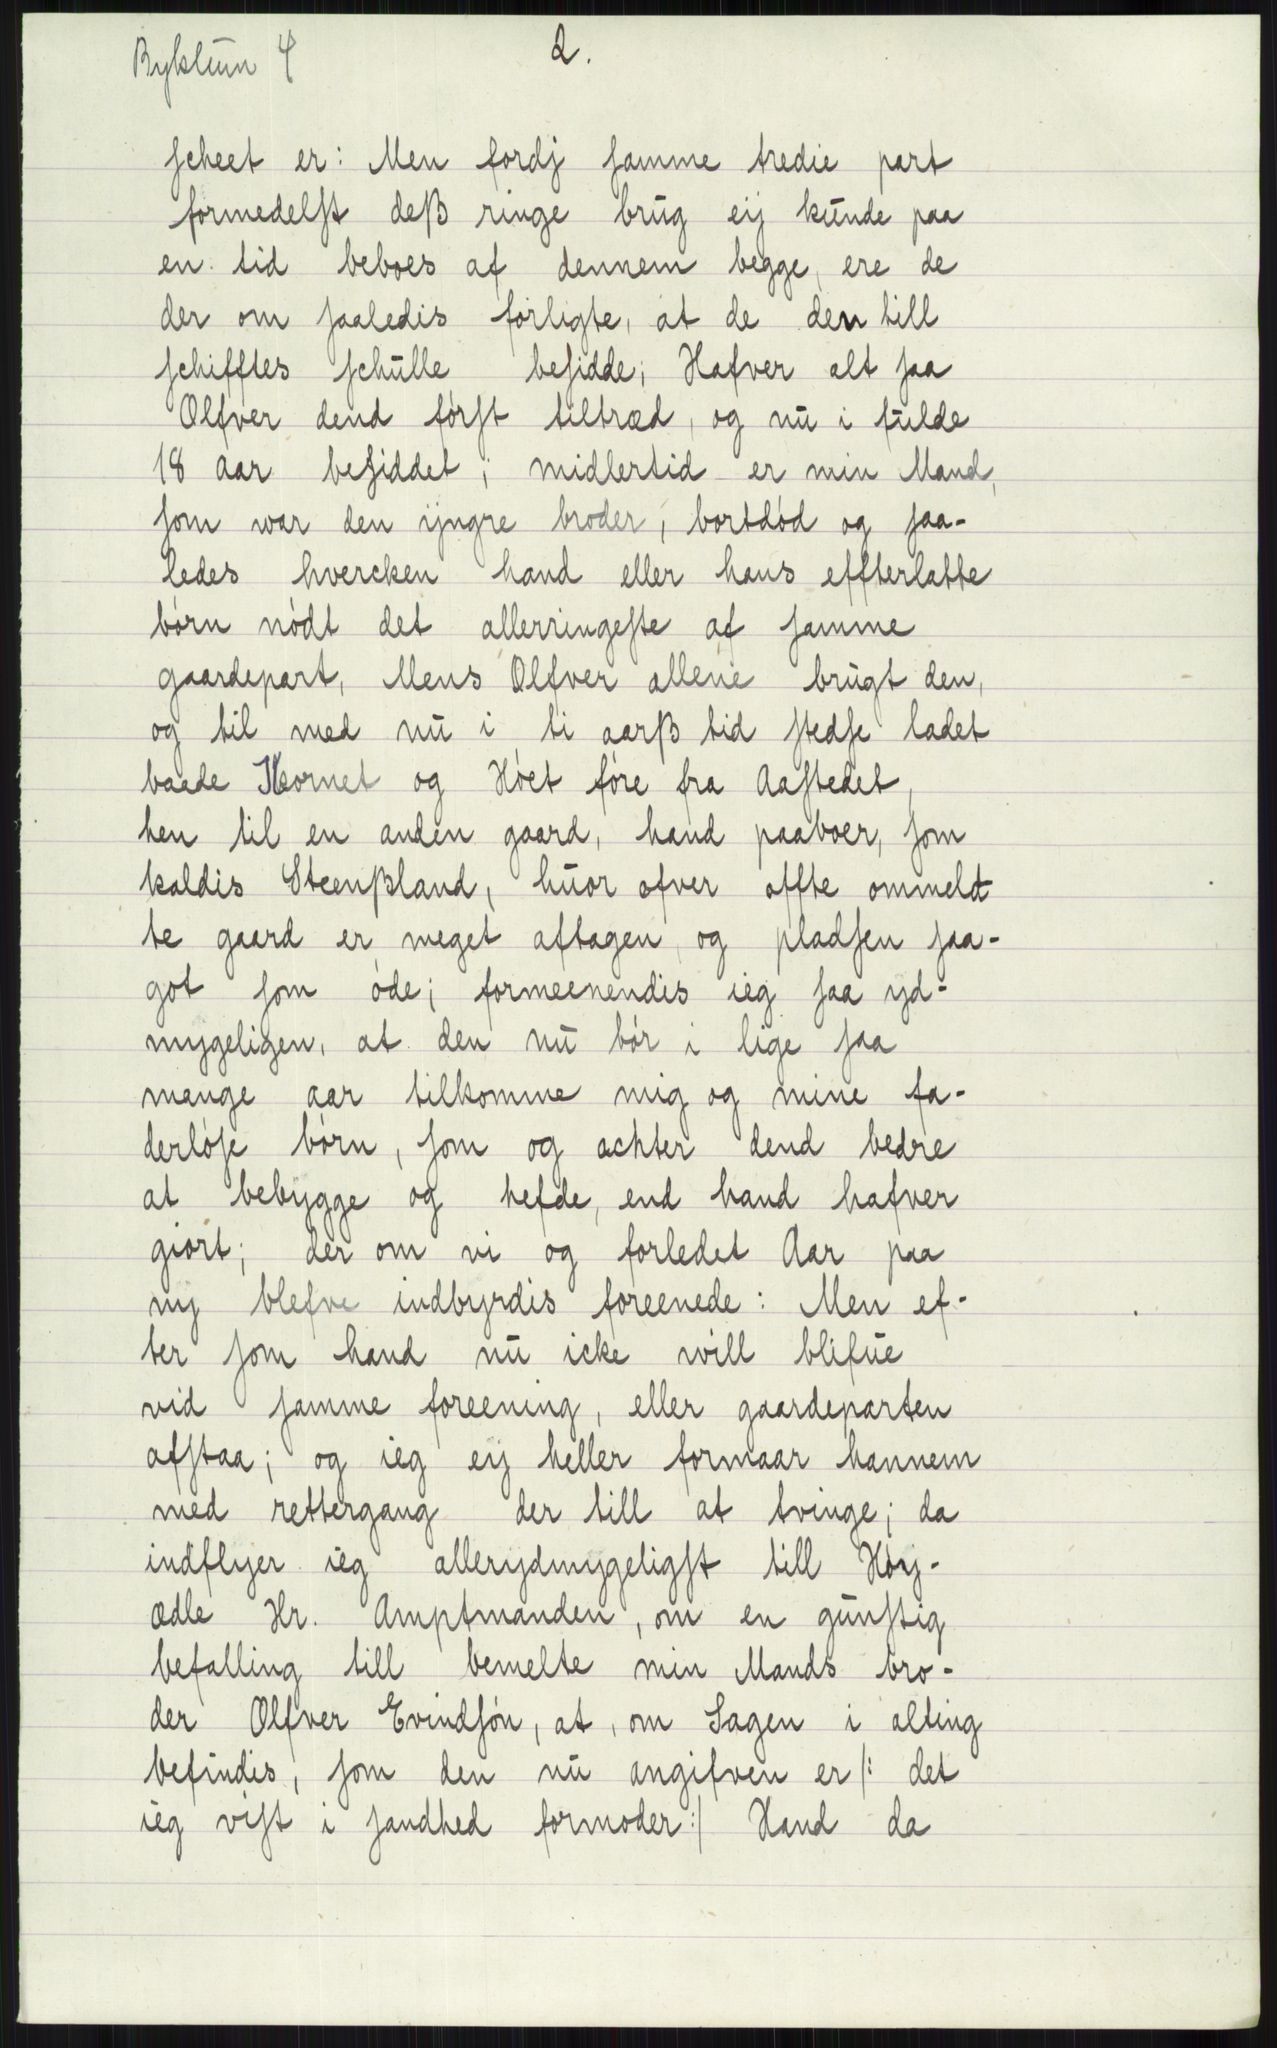 Rykstun 4
2.
scheet er: Men fordj samme tredie part
formedelst deß ringe brug eij kunde paa
en tid beboes af dennem begge, ere de
der om saaledis forligte, at de den till
schifftes schulle besidde; Hafver alt saa
Olfver dend først tiltræd, og nu i fulde
18 Aar besiddet; midlertid er min Mand,
som war den ijngre broder, bortdød og saa-
ledes hvercken hand eller hans effterlatte
børn nødt det allerringeste af samme
gaardepart, Mens Olfver allene brugt den,
og til med nu i ti aarß tid stedse ladet
baade Kornet og Høet føre fra Aastedet,
hen til en anden gaard, hand paaboer, som
kaldis Steenßland, huor ofver offte ommeld
te gaard er meget aftagen og pladsen saa-
got som øde; formeenendis ieg saa yd-
mygeligen, at den nu bør i lige saa
mange aar tilkomme mig og mine fa-
derløse børn, som og achter dend bedre
at bebygge og hefde, end hand hafver
giort; der om vi og forledet Aar paa
nij blefve indbyrdis foreenede: Men ef-
ter som hand nu icke will blifue
vid samme foreening, eller gaardeparten
afstaa; og ieg eij heller formaar hannem
med rettergang der till at tvinge; da
indflyer ieg allerydmygeligst till Høy-
ædle Hr. Amptmanden, om en gunstig
befalling till bemelte min Mands bro-
der Olfver Evindsøn, at, om Sagen i alting
befindis, som den nu angifven er /: det
ieg vist i sandhed formoder :/ Hand da